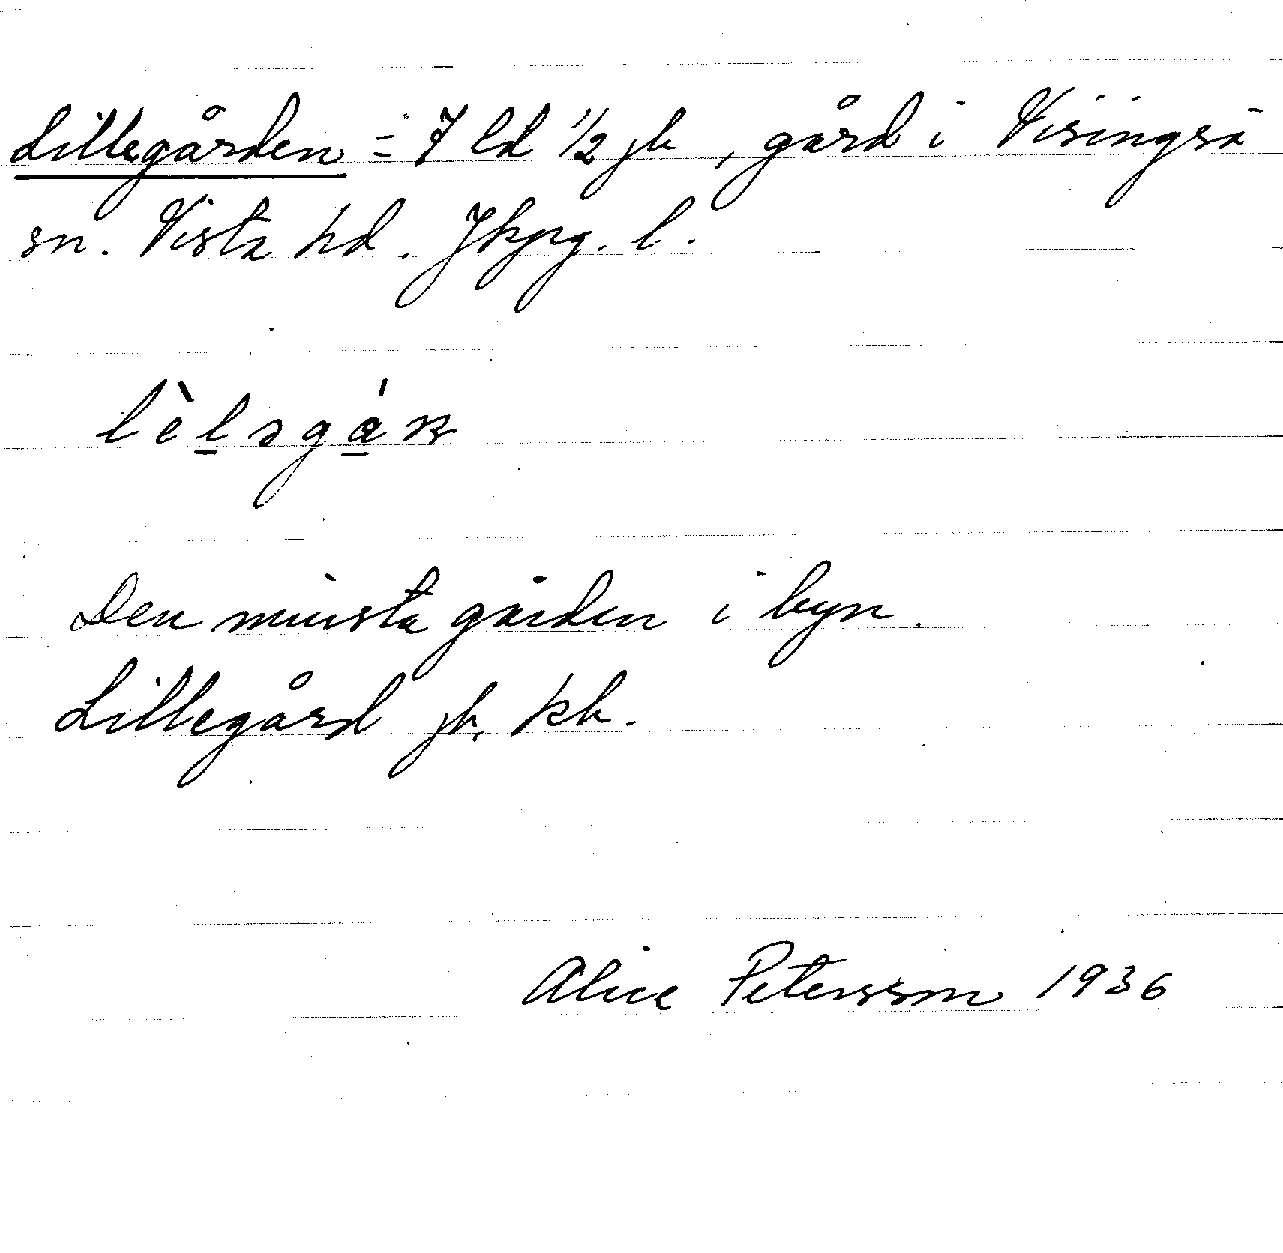 Lillegården = 7 ld 1/2 jb, gård i Visingsö
sn. Vista hd. Jkpg. l.
Den minsta gården i byn.
Lillegård jb. kb.
Alice Petersson 1936